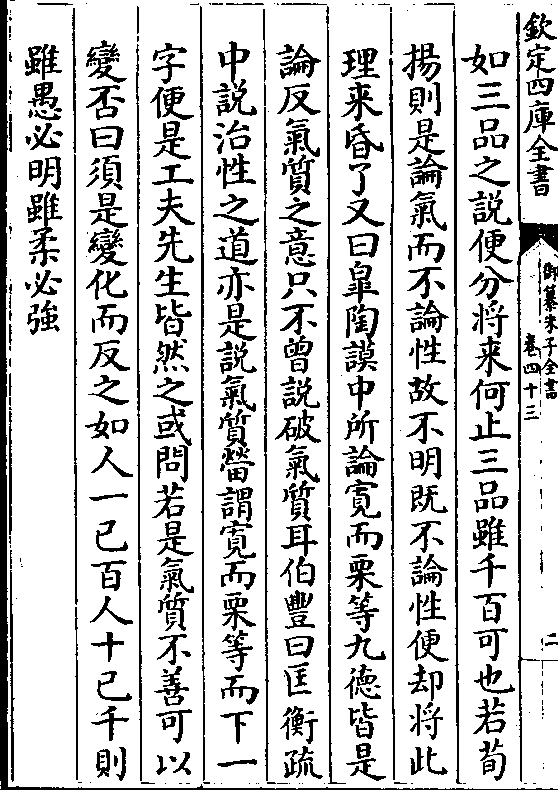 欽定四庫全書
御纂朱子全書
卷四十三
二
如三品之説便分將来何止三品雖千百可也若荀
揚則是論氣而不論性故不明既不論性便却將此
理来昏了又曰臯陶謨中所論寛而栗等九德皆是
論反氣質之意只不曾説破氣質耳伯豐曰匡衡疏
中説治性之道亦是説氣質㽦謂寛而栗等而下一
字便是工夫先生皆然之或問若是氣質不善可以
變否曰須是變化而反之如人一己百人十己千則
雖愚必明雖柔必強